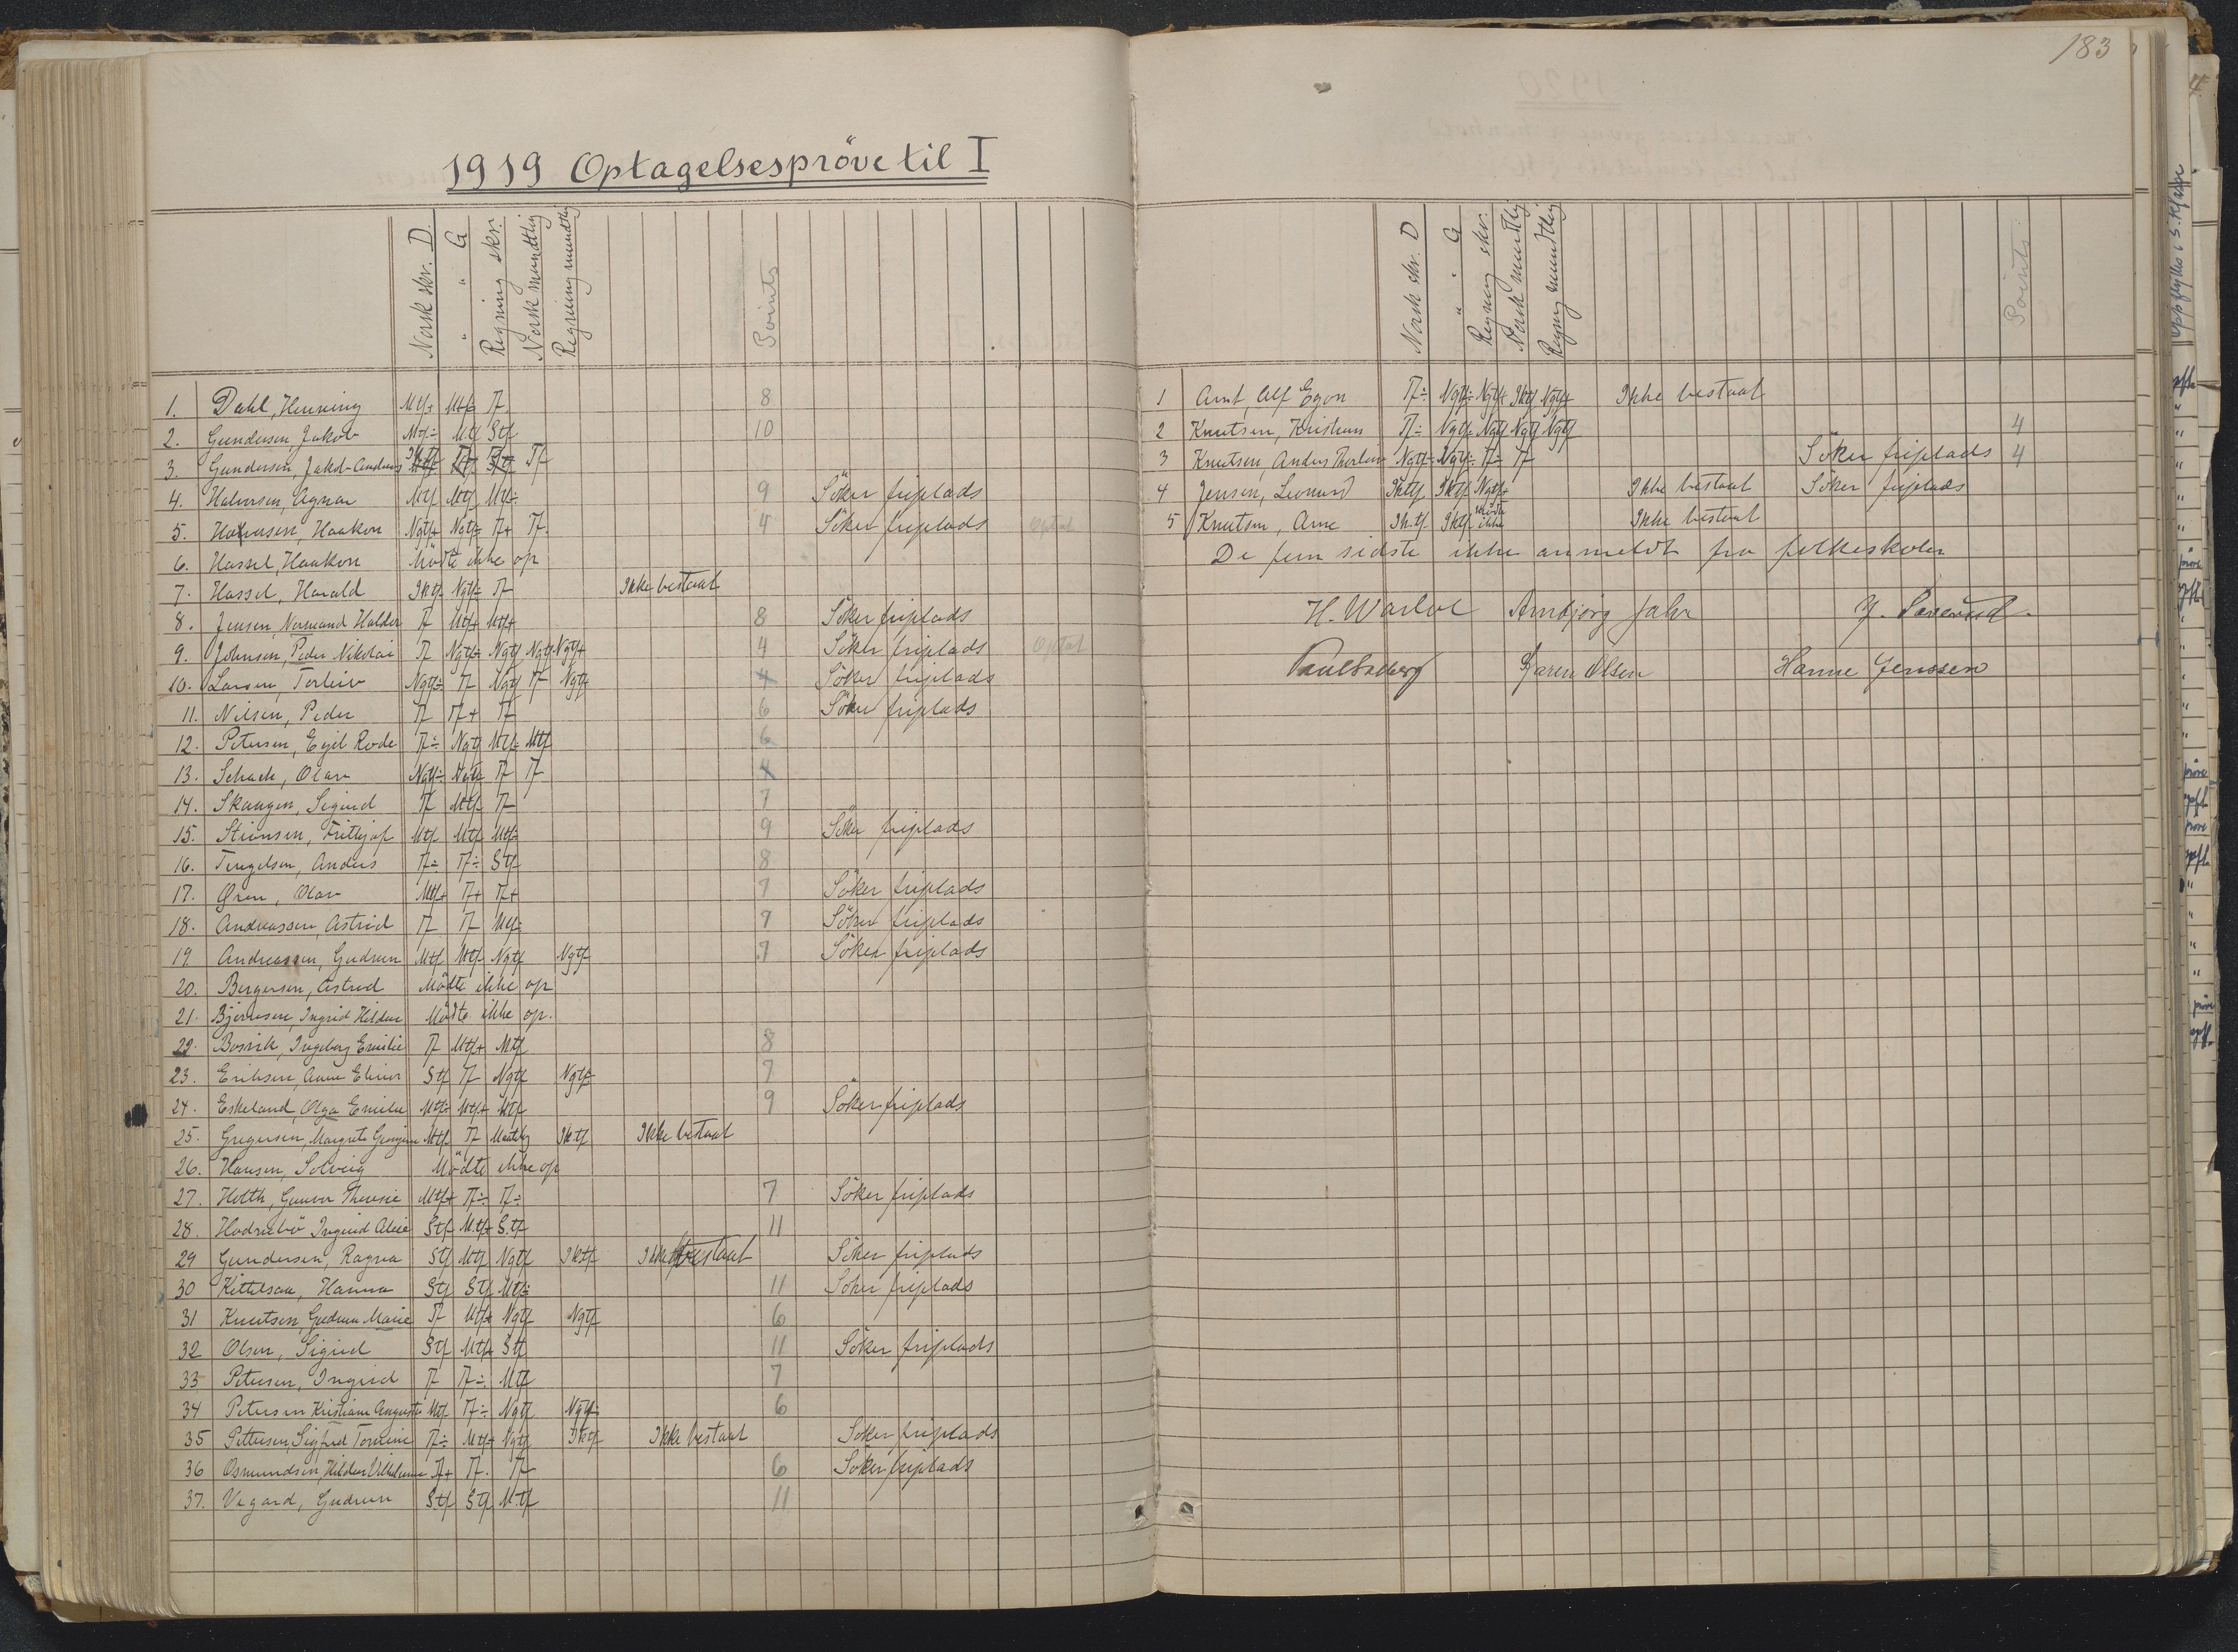 183
1919 Optagelsespröve til I
Norsk skr. D. " " G Regning skr. Norsk mundtlig Regning mundtlig Points
1. Dahl, Henning Mtf+ Mtf÷ Tf. 8
2. Gundersen, Jakob Mtf÷ Mtf Stf 10
3. Gundersen, Jakob Andreas Tf
4. Halvorsen, Agnar Mtf Mtf Mtf÷ 9 Söker friplads
5. Halvorsen, Haakon Ngtf+ Ngtf÷ Tf+ Tf. 4 Söker friplads Optat
6. Hassel, Haakon Mödte ikke op
7. Hassel, Harald Iktf Ngtf÷ Tf Ikke bestaat
8. Jensen, Normand Haldor Tf Mtf+ Mtf+ 8 Söker friplads
9. Johnsen, Peder Nikolai Tf Ngtf÷ Ngtf Ngtf Ngtf+ 4 Söker friplads Optat
10. Larsen, Torleiv Ngtf÷ Tf Ngtf Tf Ngtf 4 Söker friplads
11. Nilsen, Peder Tf Tf+ Tf 6 Söker friplads
12. Petersen, Egil Rode Tf÷ Ngtf Mtf÷ Mtf 6
13. Schack, Olav Ngtf÷ Ngtf Tf Tf 4
14. Skaugen, Sigurd Tf Mtf÷ Tf 7
15. Stiansen, Frithjof Mtf Mtf Mtf÷ 9 Söker friplads
16. Tengelsen, Anders Tf÷ Tf÷ Stf 8
17. Øren, Olav Mtf+ Tf+ Tf+ 7 Söker friplads
18. Andreassen, Astrid Tf Tf Mtf÷ 7 Söker friplads
19 Andreassen, Gudrun Mtf Mtf Ngtf Ngtf 7 Söker friplads
20. Bergersen, Astrid Mödte ikke op
21. Bjørnsen, Ingrid Hildur Mödte ikke op.
22. Bosvik, Ingeborg Emilie Tf Mtf+ Mtf 8
23. Eriksen, Anna Elinor Stf Tf Ngtf Ngtf÷ 7
24. Eskeland, Olga Emilie Mtf÷ Mtf+ Mtf 9 Söker friplads
25. Gregersen, Margrete Mtf Tf Iktf Ikke bestaat
26. Hansen, Solveig Mödte ikke op
27. Holth, Gunvor Theresie Mtf+ Tf÷ Tf÷ 7 Söker friplads
28. Hodnebö Ingrid Alice Stf Mtf+ Stf 11
29 Gundersen, Ragna Stf Mtf Ngtf Iktf Ikke bestaat Söker friplads
30 Kittelsaa, Hanna Stf Stf Mtf÷ 11 Söker friplads
31 Knutsen, Gudrun Marie Tf Mtf+ Ngtf Ngtf 6
32 Olsen, Sigrid Stf Mtf+ Stf 11 Söker friplads
33 Petersen, Ingrid Tf Tf÷ Mtf 7
34 Petersen Kristiane Augusta Mtf Tf÷ Ngtf Ngtf÷ 6
35 Pettersen, Sigfrid Iktf Ikke bestaat Söker friplads
36 Osmundsen, Hildur Vilhelmine Tf+ Tf. Tf 6 Söker friplads
37. Vegard, Gudrun Stf Stf Mtf 11
Norsk skr. D " " G Regning skr. Norsk mundtlig Regning mundtlig Points
1 Arnt, Alf Egon Tf÷ Ngtf÷ Ngtf+ Iktf Ngtf+ Ikke bestaat
2 Knutsen, Kristian Tf÷ Ngtf÷ Ngtf Ngtf Ngtf 4
3 Knutsen, Anders Thorleiv Ngtf÷ Ngtf÷ Tf÷ Tf Söker friplads 4
4 Jensen, Leonard Iktf Iktf Ngtf+ Ikke bestaat Söker friplads
5 Knutsen, Arne Iktf Iktf Mödte ikke Ikke bestaat
De fem sidste ikke anmeldt fra folkeskolen
Arnbjörg Jahr
Karen Olsen Hanne Jenssen